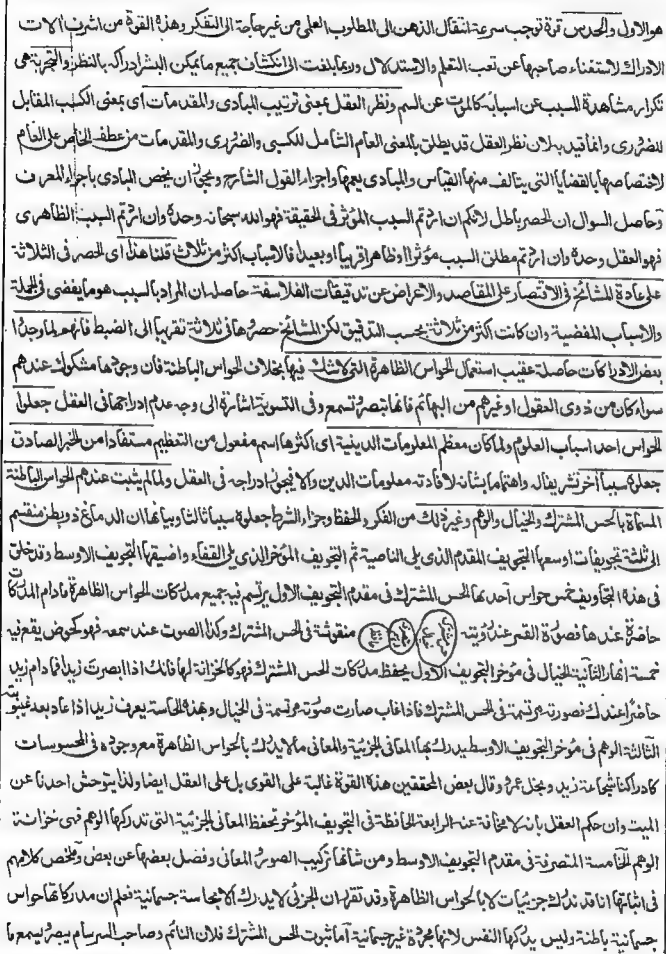 هو الاول والحدس قوة توجب سرعة انتقال الذهن الى المطلوب العلمى من غير حاجة الى التفكر وهذه القوة من اشرف الات
الادراك لاستغناء صاحبها عن تعب التعلم والاستدلال وربما بلغت الى انكشاف جميع ما يمكن البشر ادراكه بالنظر والتجربة هى
تكرار مشاهدة المسبب عن اسبابه كالموت عن السم ونظر العقل بمعنى ترتيب المبادى والمقدمات اى بمعنى الكسب المقابل
للضرورى وانما قيد به لان نظر العقل قد يطلق بالمعنى العام الشامل للكسبى والضرورى والمقدمات من عطف الخاص على العام
لاختصاصها بالقضايا التى يتالف منها القياس والمبادى يعمها واجزاء القول الشارح ويجوز ان يخص المبادى باجزاء المعرف
وحاصل السوال ان الحصر باطل لانكم ان اردتم السبب المؤثر فى الحقيقة فهو الله سبحانه وحده وان اردتم السبب الظاهرى
فهو العقل وحده وان اردتم مطلق السبب مؤثرا او ظاهرا قريبا او بعيدا فالاسباب اكثر من ثلاث قلنا هذا اى الحصر فى الثلاثة
على عادة المشائخ فى الاقتصار على المقاصد والاعراض عن تدقيقات الفلاسفة حاصله ان المراد بالسبب هو ما يفضى فى الجملة
والاسباب المفضية وان كانت اكثر من ثلاثة بحسب التدقيق لكن المشائخ حصروها فى ثلاثة تقريبا الى الضبط فانهم لما وجدوا
بعض الادراكات حاصلة عقيب استعمال الحواس الظاهرة التى لا شك فيها بخلاف الحواس الباطنة فان وجودها مشكوك عندهم
سواء كان من ذوى العقول او غيرهم من البهائم فانها تبصر وتسمع وفى التسوية اشارة الى وجه عدم ادراجها فى العقل جعلوا
الحواس احد اسباب العلم ولما كان معظم المعلومات الدينية اى اكثرها اسم مفعول من التعظيم مستفادا من الخبر الصادق
جعلوه سببا اخر تشريفا له واهتماما بشانه لافادته معلومات الدين والا فيجوز ادراجه فى العقل ولما لم يثبت عندهم الحواس الباطنة
المسماة بالحس المشترك والخيال والوهم وغير ذلك من الفكر والحفظ وجزاء الشرط جعلوه سببا ثالثا وبيانها ان الدماغ ذو بطن منقسم
الى ثلثة تجويفات اوسعها التجويف المقدم الذى يلى الناصية ثم التجويف المؤخر الذى يلى القفاء واضيقها التجويف الاوسط وقد خلق
فى هذه التجاويف خمس حواس احدىها الحس المشترك فى مقدم التجويف الاول يرتسم فيه جميع مدركات الحواس الظاهرة مادام المدركات
حاضرة عندها فصورة القمر عند رؤيته منقوشة فى الحس المشترك وكذا الصوت عند سمعه فهو كحوض يقع فيه
خمسة انهار الثانية الخيال فى مؤخر التجويف الاول يحفظ مدركات الحس المشترك فهو كالخزانة لها فانك اذا ابصرت زيدا فمادام زيد
حاضرا عندك فصورته مرتسمة فى الحس المشترك فاذا غاب صارت صورته مرتسمة فى الخيال وبهذه الحاسة يعرف زيد اذا عاد بعد غيبوبته
الثالثة الوهم فى مؤخر التجويف الاوسط يدرك بها المعانى الجزئية والمعانى ما لا يدرك بالحواس الظاهرة مع وجوده فى المحسوسات
كادراكنا شجاعة زيد وبخل عمرو وقال بعض المحققين هذه القوة غالبة على القوى بل على العقل ايضا ولذا يتوحش احدنا عن
الميت وان حكم العقل بانه لا مخافة عنه الرابعة الحافظة فى التجويف المؤخر تحفظ المعانى الجزئية التى تدركها الوهم فهى خزانة
الوهم الخامسة المتصرفة فى مقدم التجويف الاوسط ومن شانها تركيب الصور والمعانى وفصل بعضها عن بعض وملخص كلامهم
فى اثباتها انا قد ندرك جزئيات لا بالحواس الظاهرة وقد تقرر ان الجزئى لا يدرك الا بحاسة جسمانية فعلم ان مدركاتها حواس
جسمانية باطنة وليس يدركها النفس لانها مجردة غير جسمانية اما ثبوت الحس المشترك فلان النائم وصاحب السرسام يبصر ويسمع ما